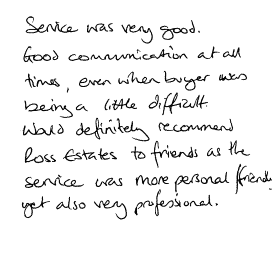 Service was very good.
Good communication at all
times, even when buyer was
being a little difficult.
Would definitely recommend
Ross Estates to friends as the
service was more personal / friendly
yet also very professional.